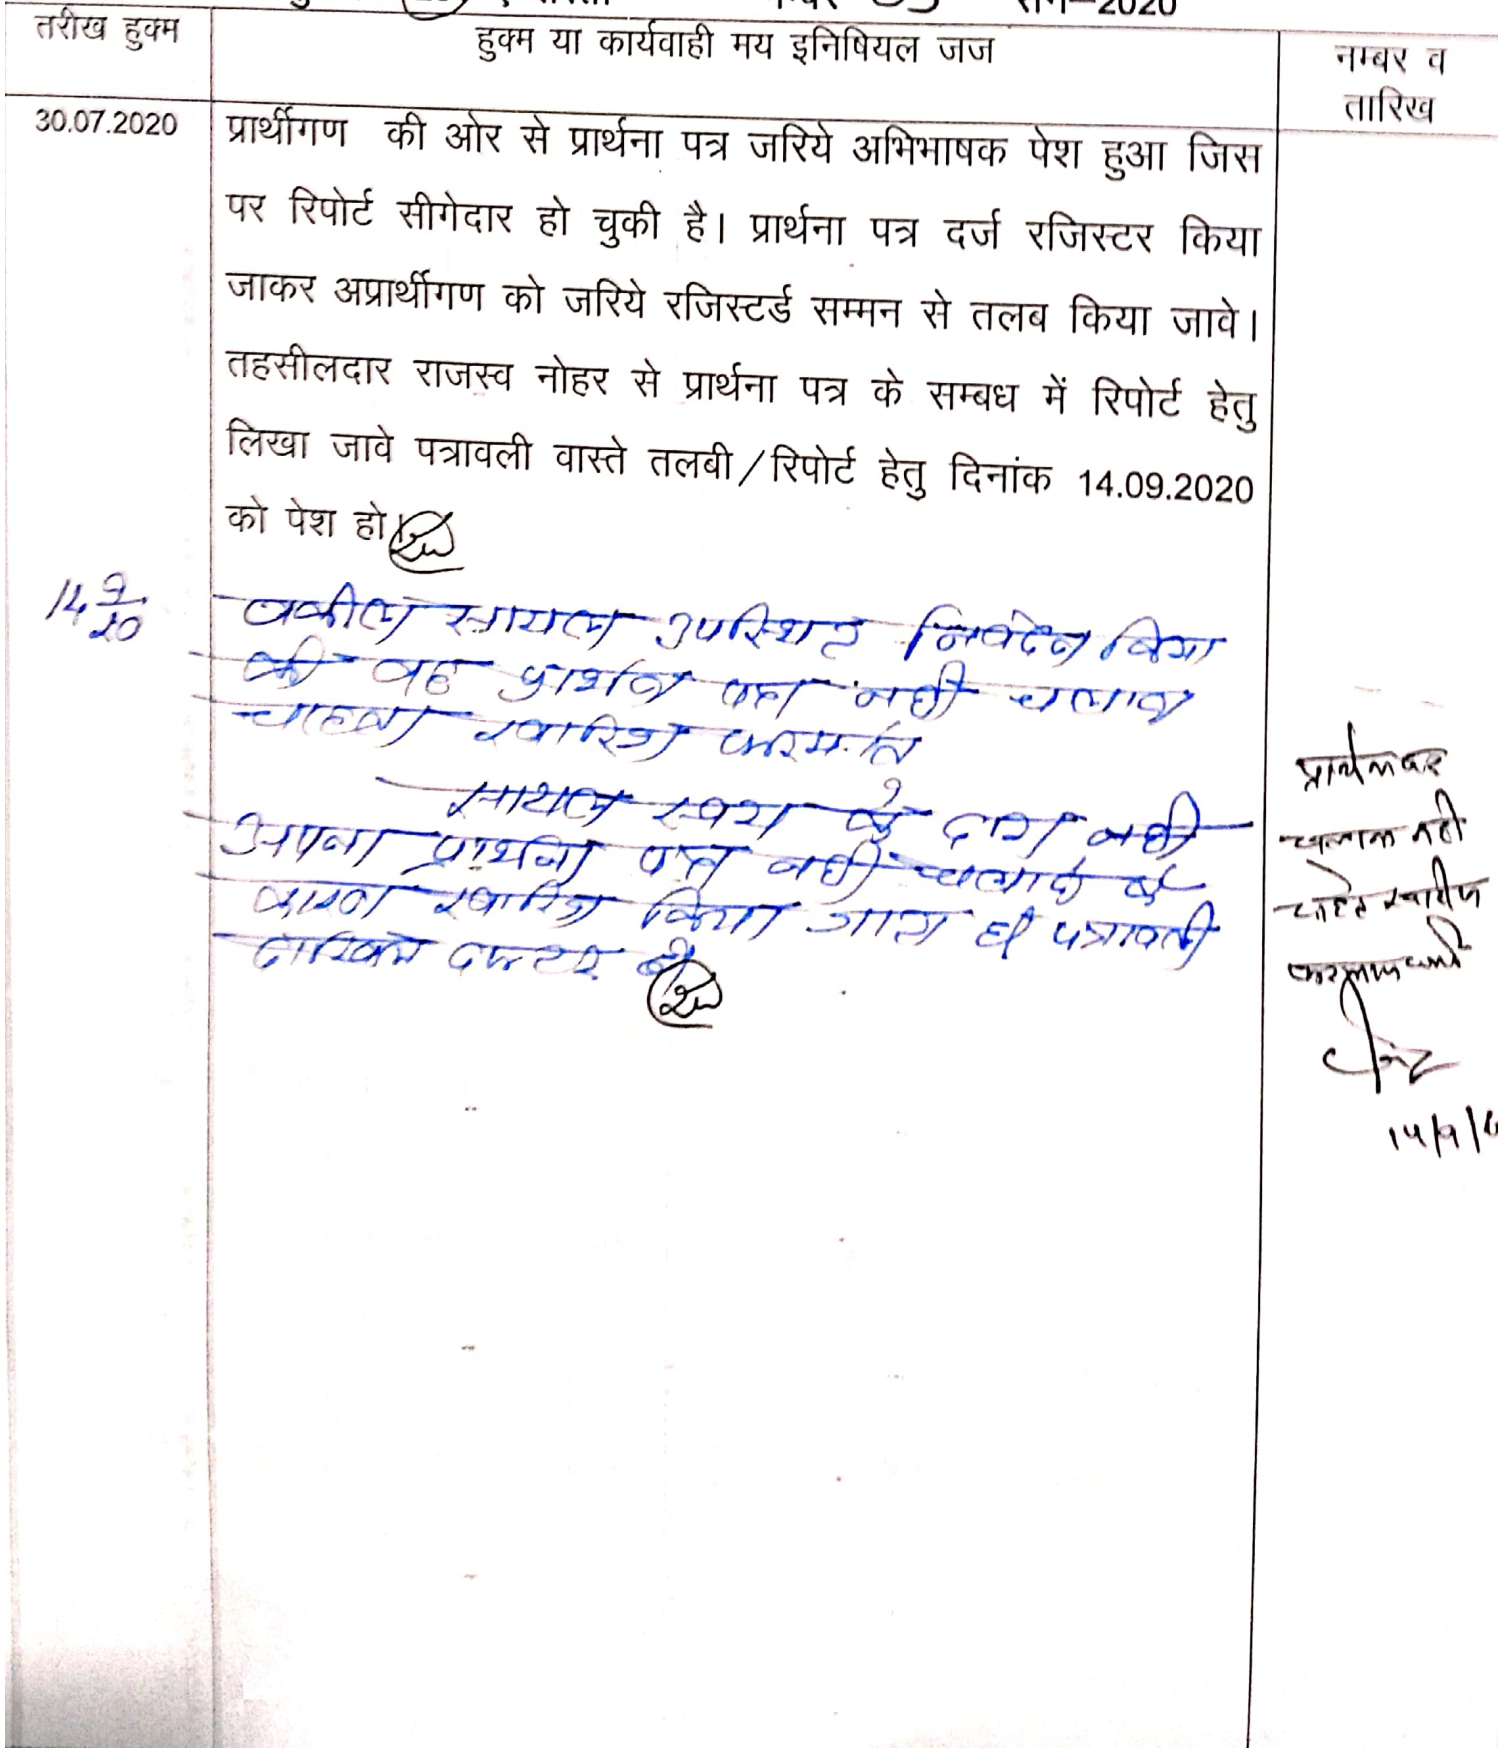 2020
तरीख हुक्म
हुक्म या कार्यवाही मय इनिषियल जज
नम्बर व
तारिख
30.07.2020
प्रार्थीगण की ओर से प्रार्थना पत्र जरिये अभिभाषक पेश हुआ जिस
पर रिपोर्ट सीगेदार हो चुकी है। प्रार्थना पत्र दर्ज रजिस्टर किया
जाकर अप्रार्थीगण को जरिये रजिस्टर्ड सम्मन से तलब किया जावे।
तहसीलदार राजस्व नोहर से प्रार्थना पत्र के सम्बध में रिपोर्ट हेतु
लिखा जावे पत्रावली वास्ते तलबी/रिपोर्ट हेतु दिनांक 14.09.2020
को पेश हो
14 9/20
वकील सायल उपस्थित निवेदन किया
की वह प्रार्थना पत्र नही चलाना
चाहता खारिज फरमावे
सायल स्वयं के द्वारा नही
अपना प्रार्थना पत्र नही चलाने के
कारण खारिज किया जाता है पत्रावली
दाखिल दफ्तर हो
प्रार्थना पत्र
चलाना नही
चाहते खारीज
14/9/